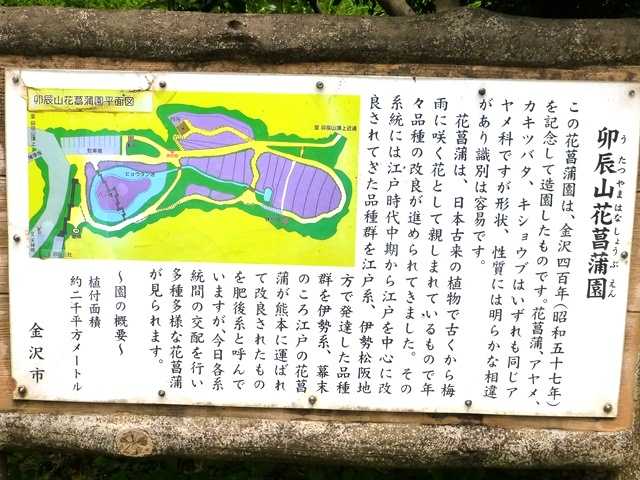 卯辰山花菖蒲園
うたつやまはなしょうぶえん
この花菖蒲園は、金沢四百年(昭和五十七年)
を記念して造園したものです。花菖蒲、アヤメ、
カキツバタ、キショウブはいずれも同じア
ヤメ科ですが形状、性質には明らかな相違
があり識別は容易です。
花菖蒲は、日本古来の植物で古くから梅
雨に咲く花として親しまれているもので年
々品種の改良が進められてきました。その
系統には江戸時代中期から江戸を中心に改
良されてきた品種群を江戸系、伊勢松阪地
方で発達した品種
群を伊勢系、幕末
のころ江戸の花菖
蒲が熊本に運ばれ
て改良されたもの
を肥後系と呼んで
いますが、今日各系
統間の交配を行い
多種多様な花菖蒲
が見られます。
~園の概要~
植付面積
約二千平方メートル
金沢市
卯辰山花菖蒲園平面図
駐車場
ヒョウタン池